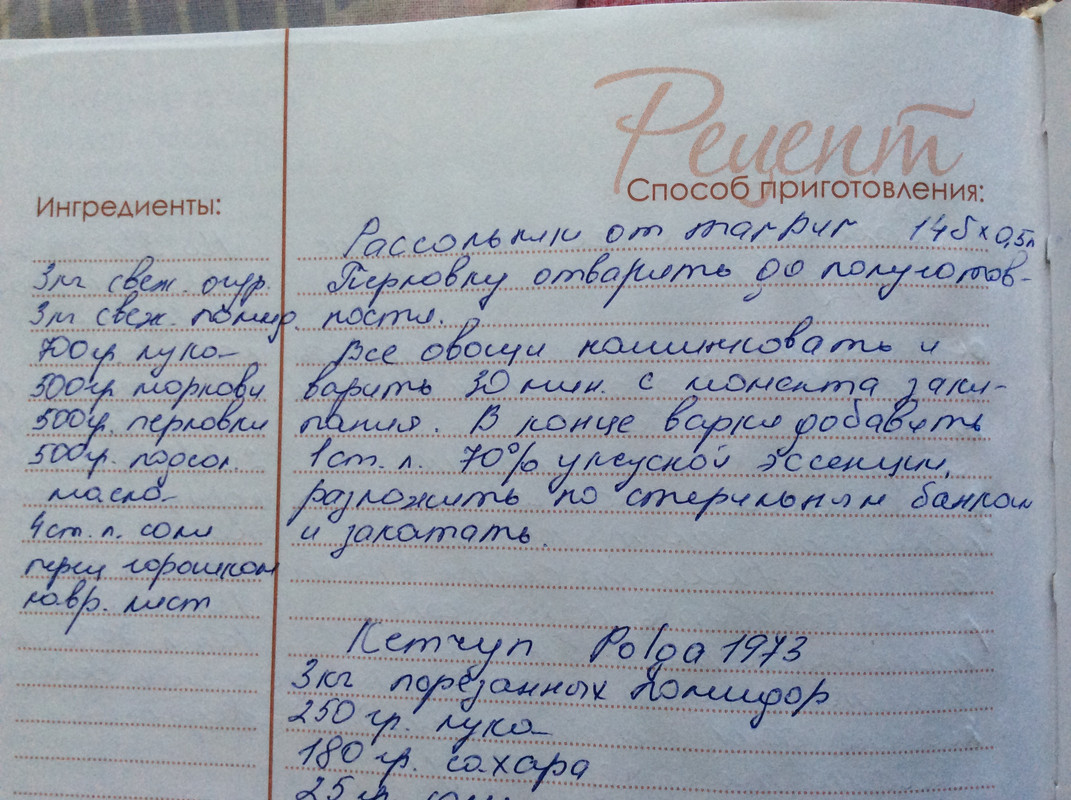 Рецепт
Способ приготовления:
Ингредиенты:
Рассольник от 14б х 0,5л
3кг свеж. огур.
3кг свеж. помид.
700гр лука
500гр моркови
500гр. перловки
500гр. подсол.
масла
4ст. л. соли
перец горошком
лавр. лист
Перловку отварить до полуготов-
ности.
Все овощи нашинковать и
варить 30 мин. с момента заки-
пания. В конце варки добавить
1ст. л. 70% уксусной эссенции,
разложить по стерильным банкам
и закатать.
Кетчуп Polga 1973
3кг порезанных помидор
250 гр. лука
180 гр. сахара
25 гр.